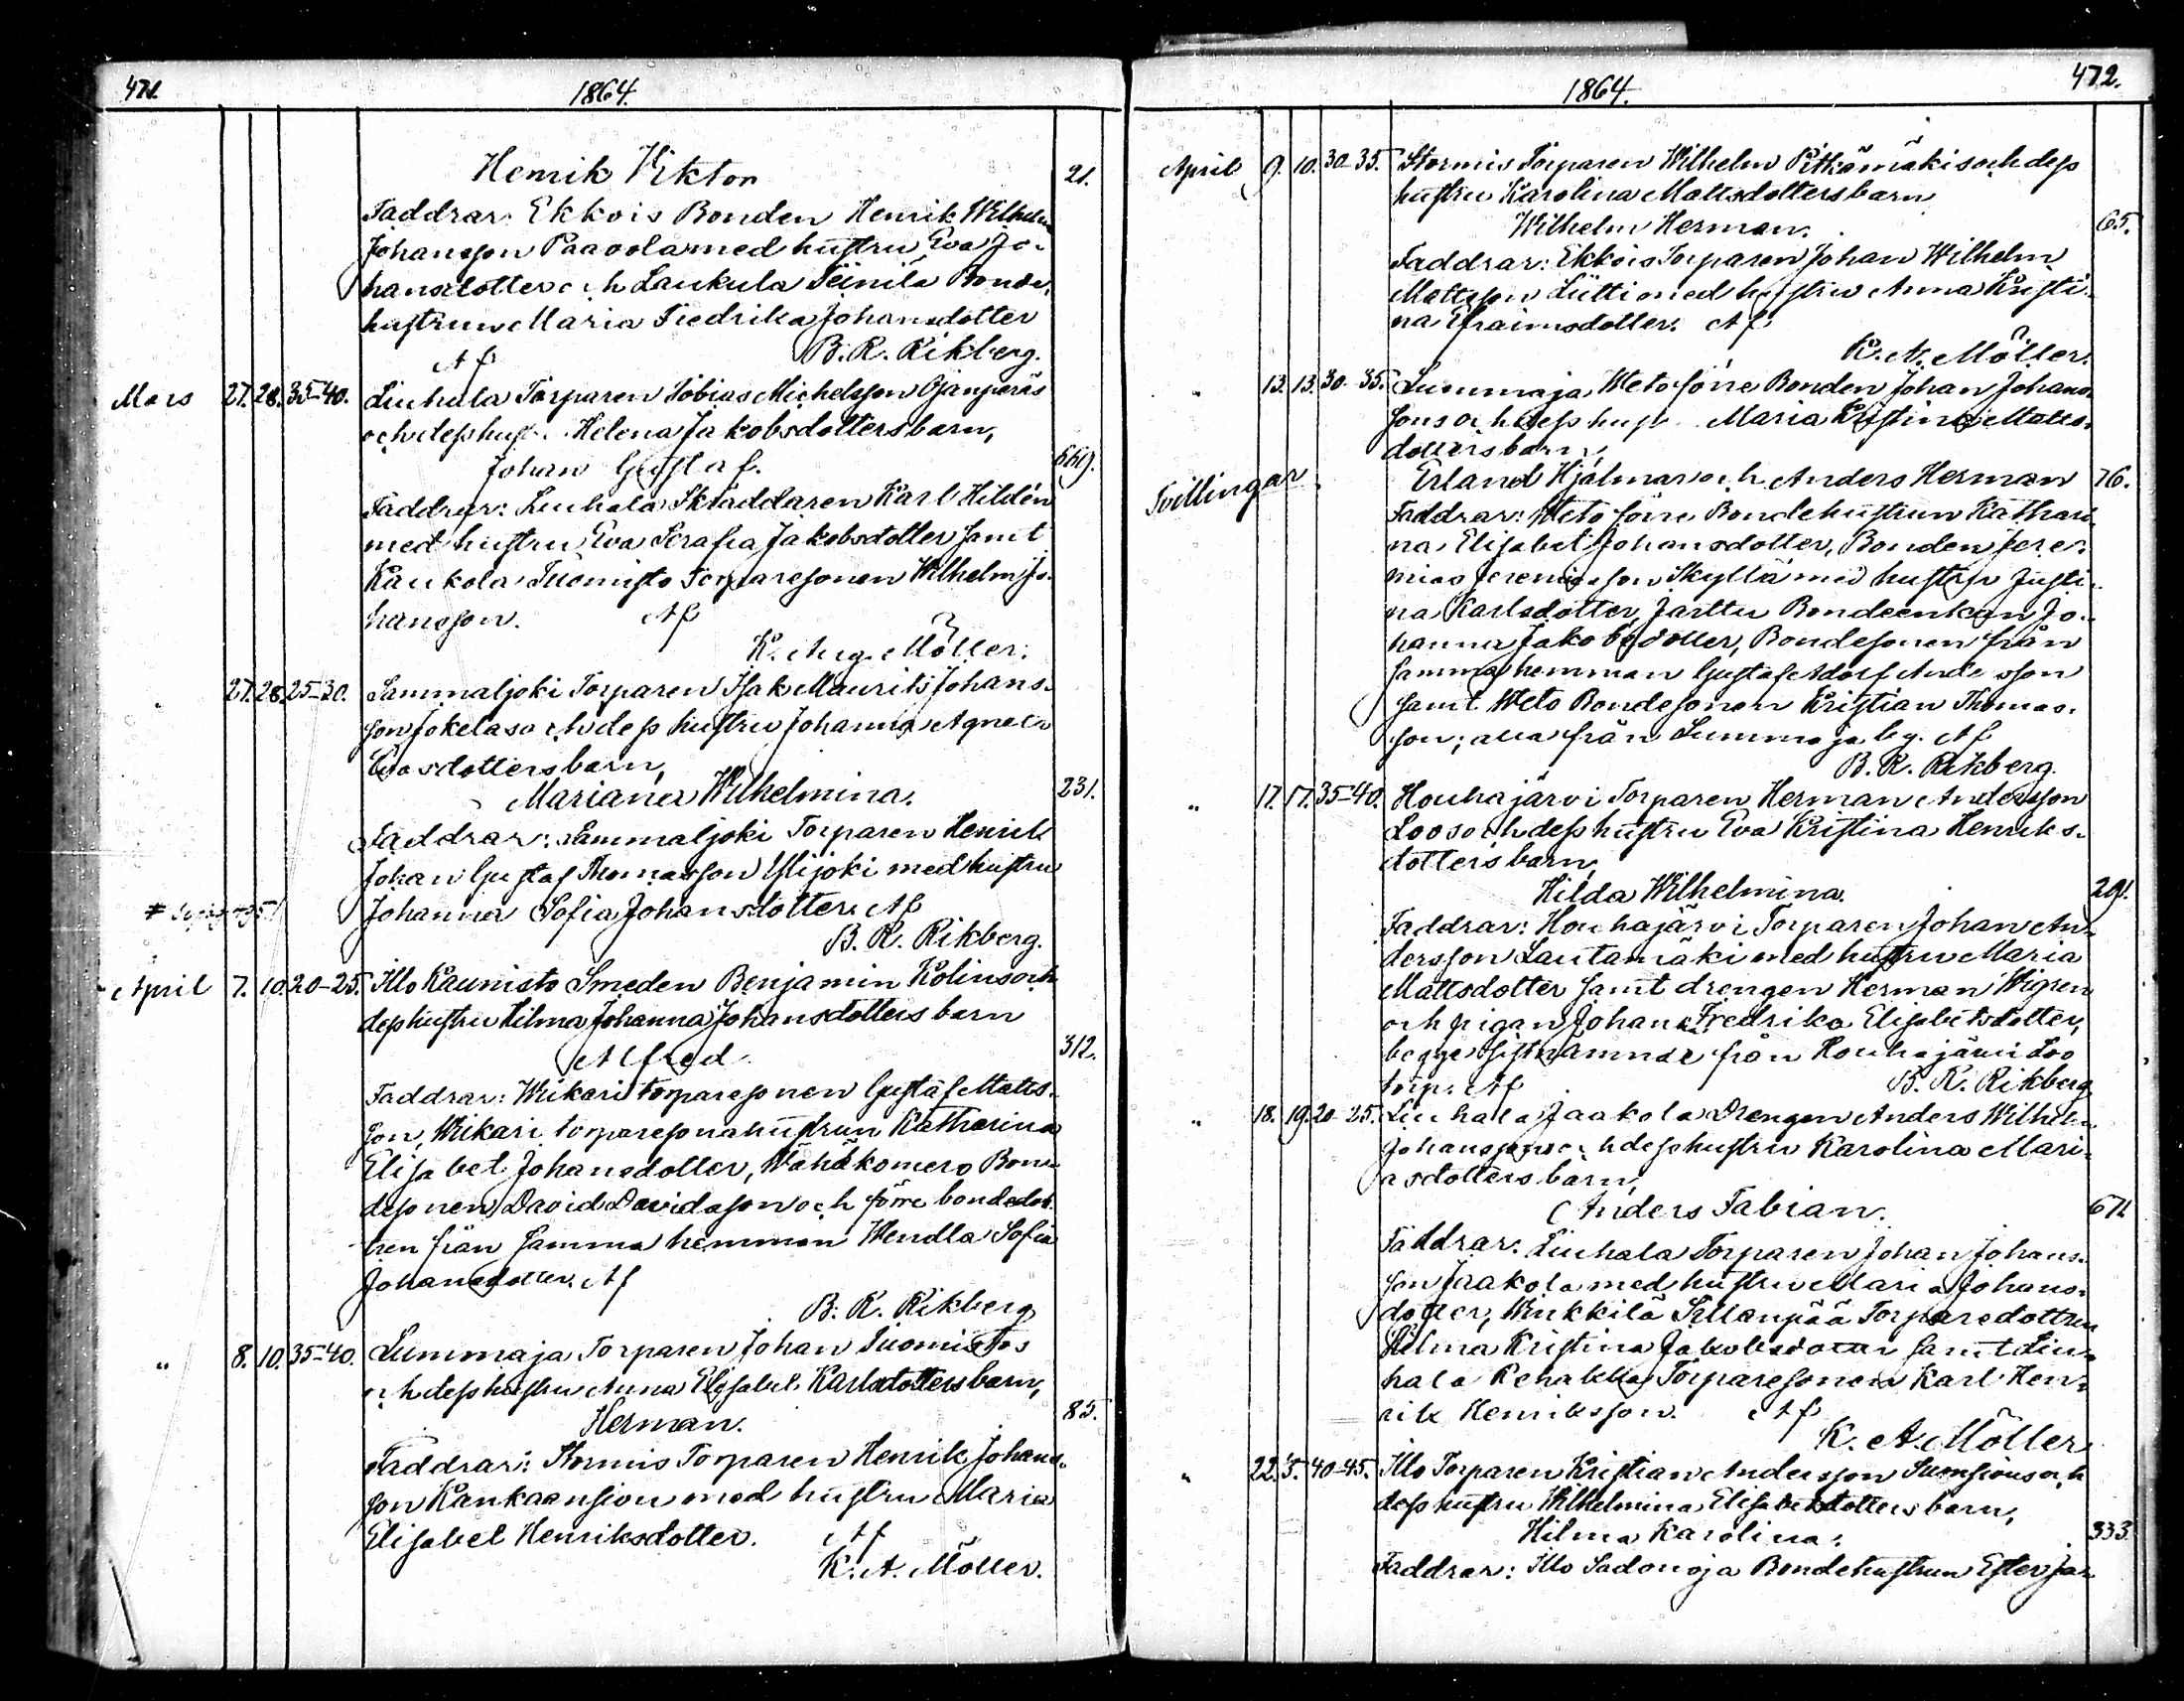 471.
1864.
Henrik Viktor
21.
Faddrar: Ekkois Bonden Henrik Wilhelm
Johansson Paavola med hustru Eva Jo-
hansdotter och Laukula Seinilä Bonde
hustrun Maria Fredrika Johansdotter
Af B. R. Rikberg.
Mars 27. 28. 35-40. Liuhala Torparen Tobias Michelsson Ojanperäs
och dess hust Helena Jakobsdotters barn,
Johan Gustaf.
669.
Faddrar: Liuhala Skräddaren Karl Hildén
med hustru Eva Serafia Jakobsdotter samt
Kaukola Tuomisto Torparesonen Wilhelm Jo-
hansson. Af
K. Aug. Möller.
" 27. 28. 25-30. Sammaljoki Torparen Isak Maurits Johans-
son Jokelas och dess hustru Johanna Agneta
Evasdotters barn,
Mariana Wilhelmina.
231.
Faddrar: Sammaljoki Torparen Henrik
Johan Gustaf Thomasson Ylijoki med hustru
Johanna Sofia Johansdotter. Af
B. R. Rikberg.
April 7. 10. 20-25. Illo Kaunisto Smeden Benjamin Kolins och
dess hustru Hilma Johanna Johansdotters barn
Alfred.
312.
Faddrar: Wiikari torparesonen Gustaf Matts-
son, Wiikari torparesonahustrun Katharina
Elisabet Johansdotter, Wähäkomero Bon-
desonen David Davidsson och förre bondedot-
tren från samma hemman Wendla Sofia
Johansdotter. Af
B. R. Rikberg
" 8. 10. 35-40. Lummaja Torparen Johan Tuomistos
och dess hustru Anna Elisabet Karlsdotters barn,
Herman.
85.
Faddrar: Stormis Torparen Henrik Johans-
son Kankaansivu med hustru Maria
Elisabet Henriksdotter. Af
K. A. Möller.
1864.
472.
April 9. 10. 30-35. Stormis Torparen Wilhelm Pitkämäkis och dess
hustru Karolina Mattsdotters barn
Wilhelm Herman.
65.
Faddrar: Ekkois Torparen Johan Wilhelm
Mattsson Liitti med hustru Anna Kristi-
na Efraimsdotter. Af
K. A. Möller.
" 13. 13. 30-35. Lummaja Weto förre Bonden Johan Johans-
sons och dess hust Maria Kristina Matts-
dotters barn,
Tvillingar
Erland Hjalmar och Anders Herman
76.
Faddrar: Weto förre Bondehustrun Kathari-
na Elisabet Johansdotter, Bonden Jere-
mias Jeremiasson Skyttä med hustru Justi-
na Karlsdotter, Jarttu Bondeenkan Jo-
hanna Jakobsdotter, Bondesonen från
samma hemman Gustaf Adolf Andersson
samt Weto Bondesonen Kristian Thomas-
son; alla från Lummaja by. Af
B. R. Rikberg.
" 17. 17. 35-40. Houhajärvi Torparen Herman Andersson
Loos och dess hustru Eva Kristina Henriks-
dotters barn,
Hilda Wilhelmina.
291.
Faddrar: Houhajärvi Torparen Johan An-
dersson Lautamäki med hustru Maria
Mattsdotter samt drengen Herman Wigren
och pigan Johana Fredrika Elisabetsdotter,
begge sistnämnde från Houhajärvi Loo
torp. Af B. R. Rikberg
" 18. 19. 20-25. Liuhala Jaakola Drengen Anders Wilhelm
Johansson och dess hustru Karolina Mari-
asdotters barn,
Anders Fabian.
671.
Faddrar: Liuhala Torparen Johan Johans-
son Jaakola med hustru Maria Johans-
dotter, Winkkilä Sillanpää Torparedottren
Hilma Kristina Jakobsdotter samt Liu-
hala Rehakka Torparesonen Karl Hen-
rik Henriksson. Af
K. A. Möller
" 22. 5. 40-45. Illo Torparen Kristian Andersson Suonsivus och
dess hustru Wilhelmina Elisabetsdotters barn,
Hilma Karolina.
333.
Faddrar: Illo Sadonoja Bondehustrun Ester Ja-